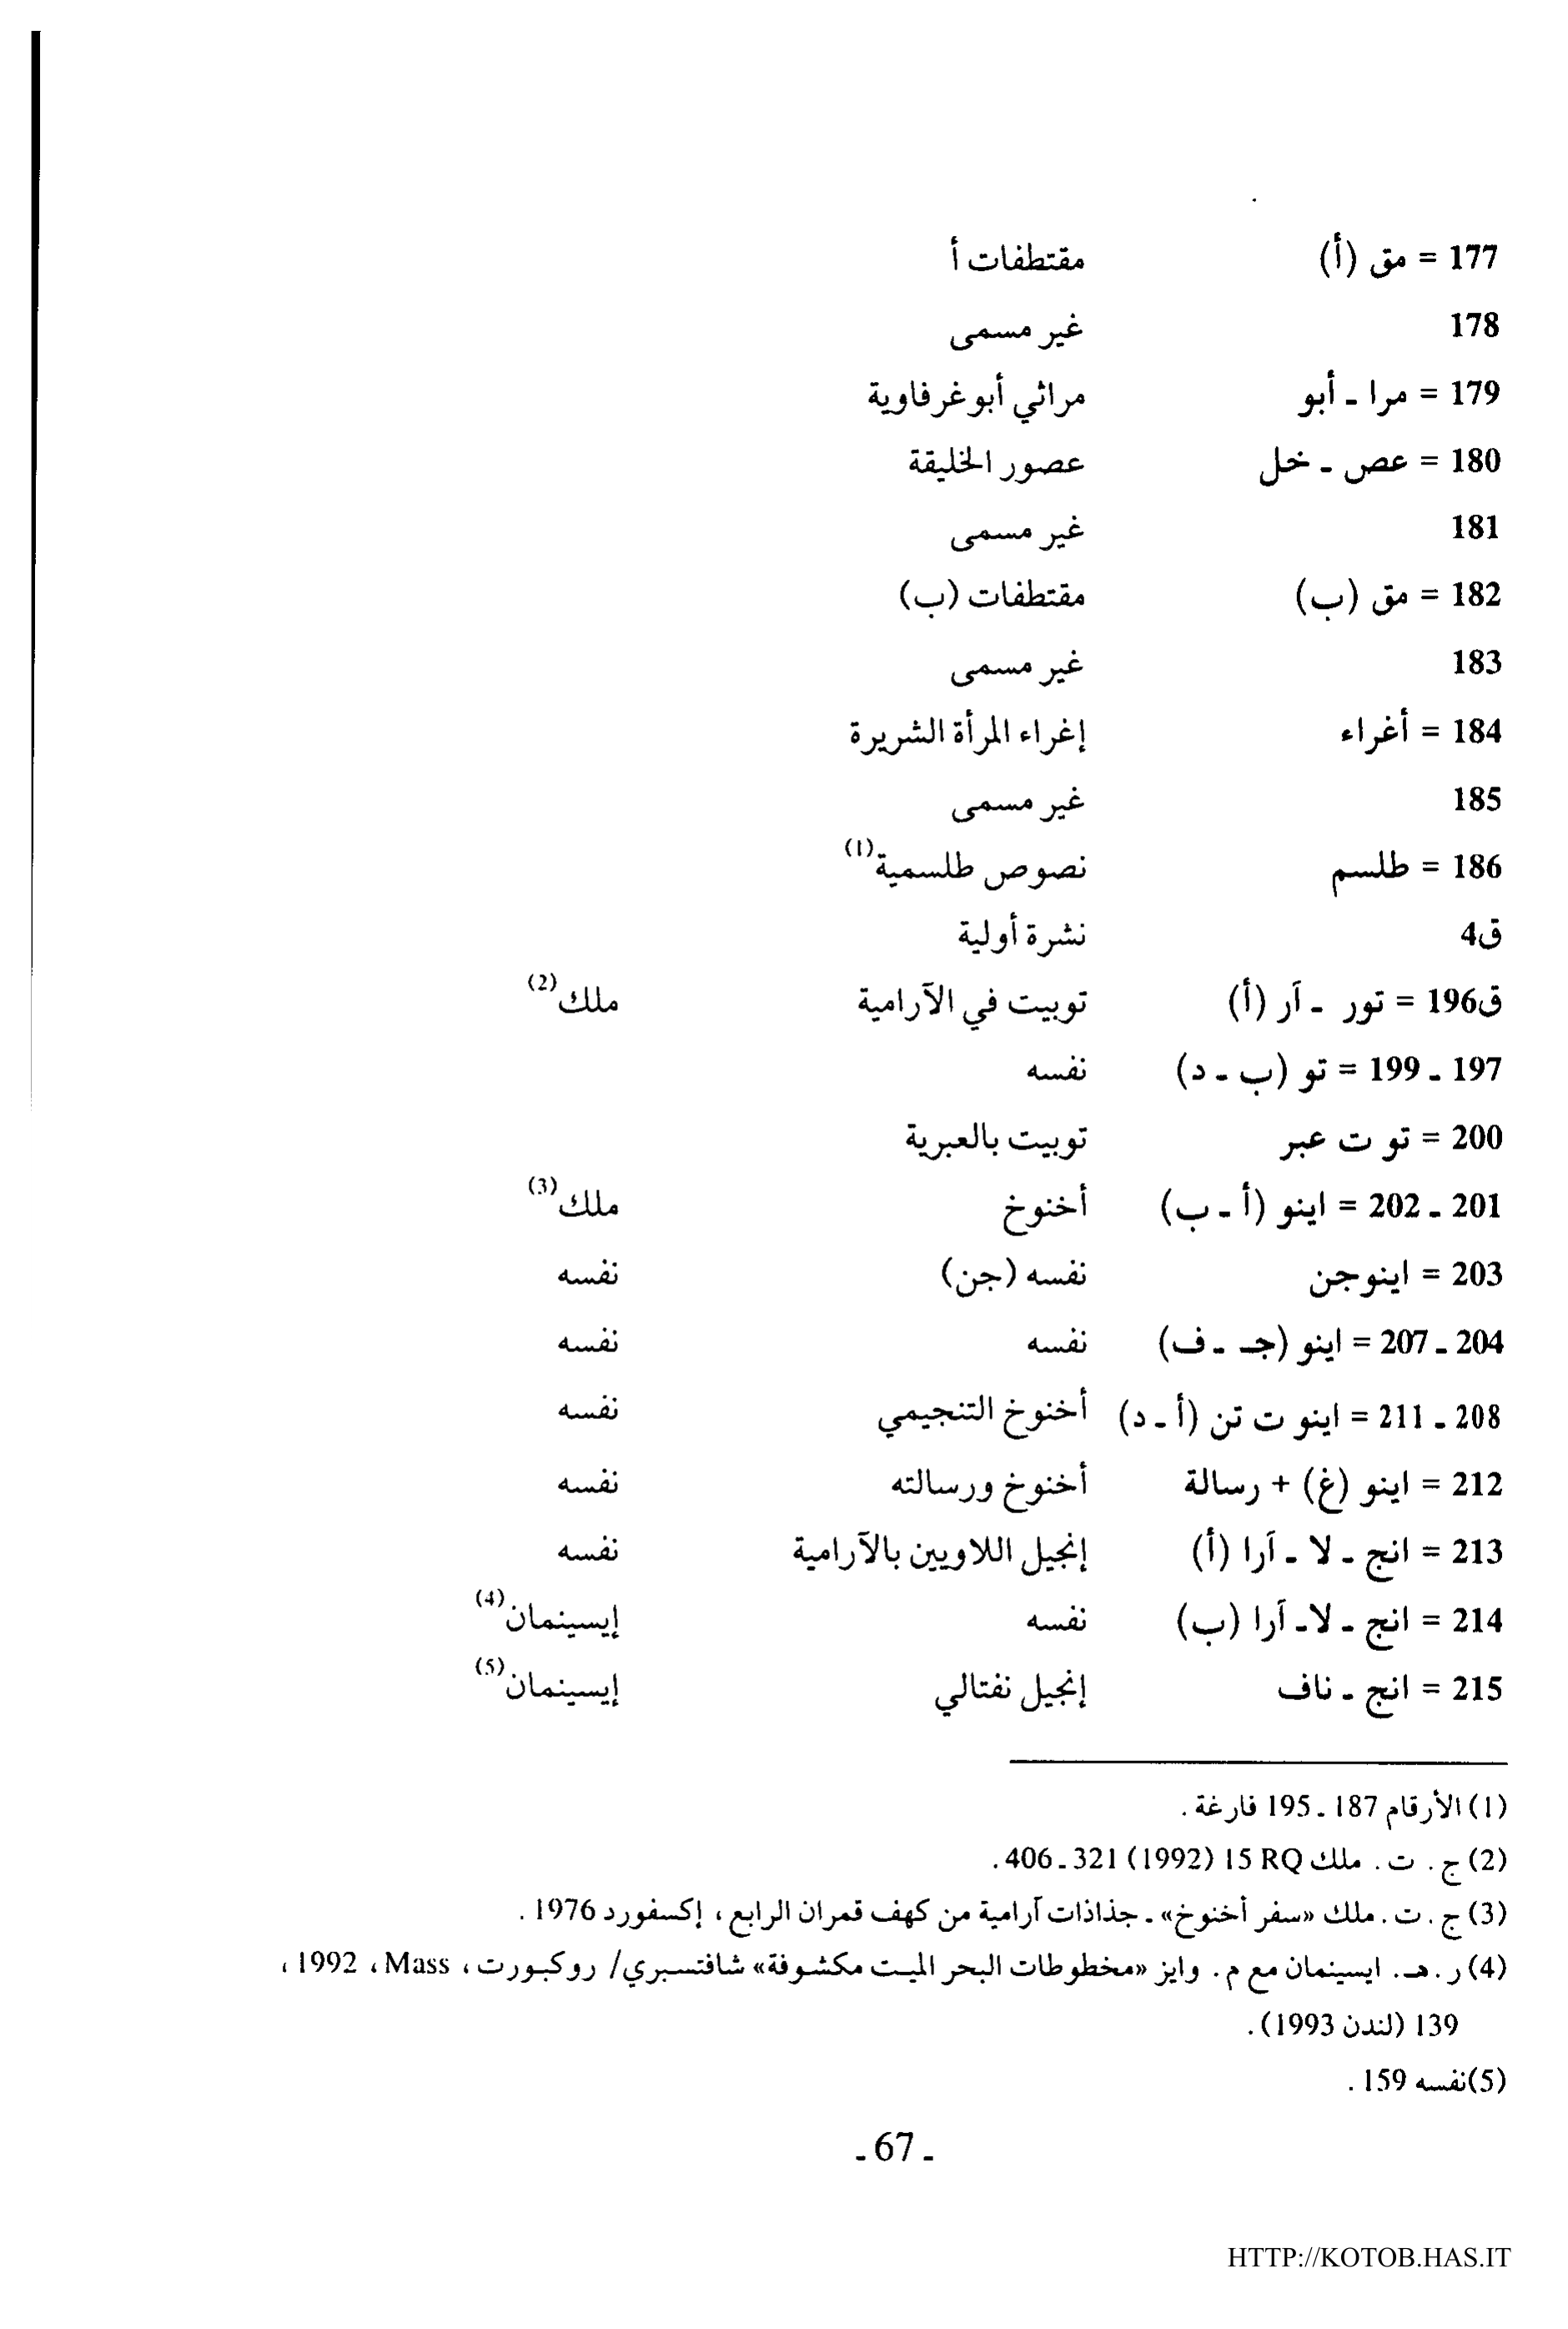 177 = مق (أ) مقتطفات أ
178 غير مسمى
179 = مرا - أبو مراثي أبوغرفاوية
180 = عص - خل عصور الخليقة
181 غير مسمى
182 = مق (ب) مقتطفات (ب)
183 غير مسمى
184 = أغراء إغراء المرأة الشريرة
185 غير مسمى
186 = طلسم نصوص طلسمية(1)
ق4 نشرة أولية
ق196 = تور - آر (أ) توبيت في الآرامية ملك(2)
197 - 199 = تو (ب - د) نفسه
200 = تو ت عبر توبيت بالعبرية
201 - 202 = اينو (أ - ب) أخنوخ ملك(3)
203 = اينوجن نفسه (جن) نفسه
204 - 207 = اينو (جـ - ف) نفسه نفسه
208 - 211 = اينو ت تن (أ - د) أخنوخ التنجيمي نفسه
212 = اينو (غ) + رسالة أخنوخ ورسالته نفسه
213 = انج - لا - آرا (أ) إنجيل اللاويين بالآرامية نفسه
214 = انج - لا- آرا (ب) نفسه إيسينمان(4)
215 = انج - ناف إنجيل نفتالي إيسينمان(5)
(1) الأرقام 187 - 195 فارغة .
(2) ج . ت . ملك RQ 15 (1992) 321 - 406 .
(3) ج . ت . ملك «سفر أخنوخ» - جذاذات آرامية من كهف قمران الرابع ، إكسفورد 1976 .
(4) ر . هـ . ايسينمان مع م . وايز «مخطوطات البحر الميت مكشوفة» شافتسبري/ روكبورت ، Mass ، 1992 ،
139 (لندن 1993) .
(5)نفسه 159 .
- 67 -
HTTP://KOTOB.HAS.IT